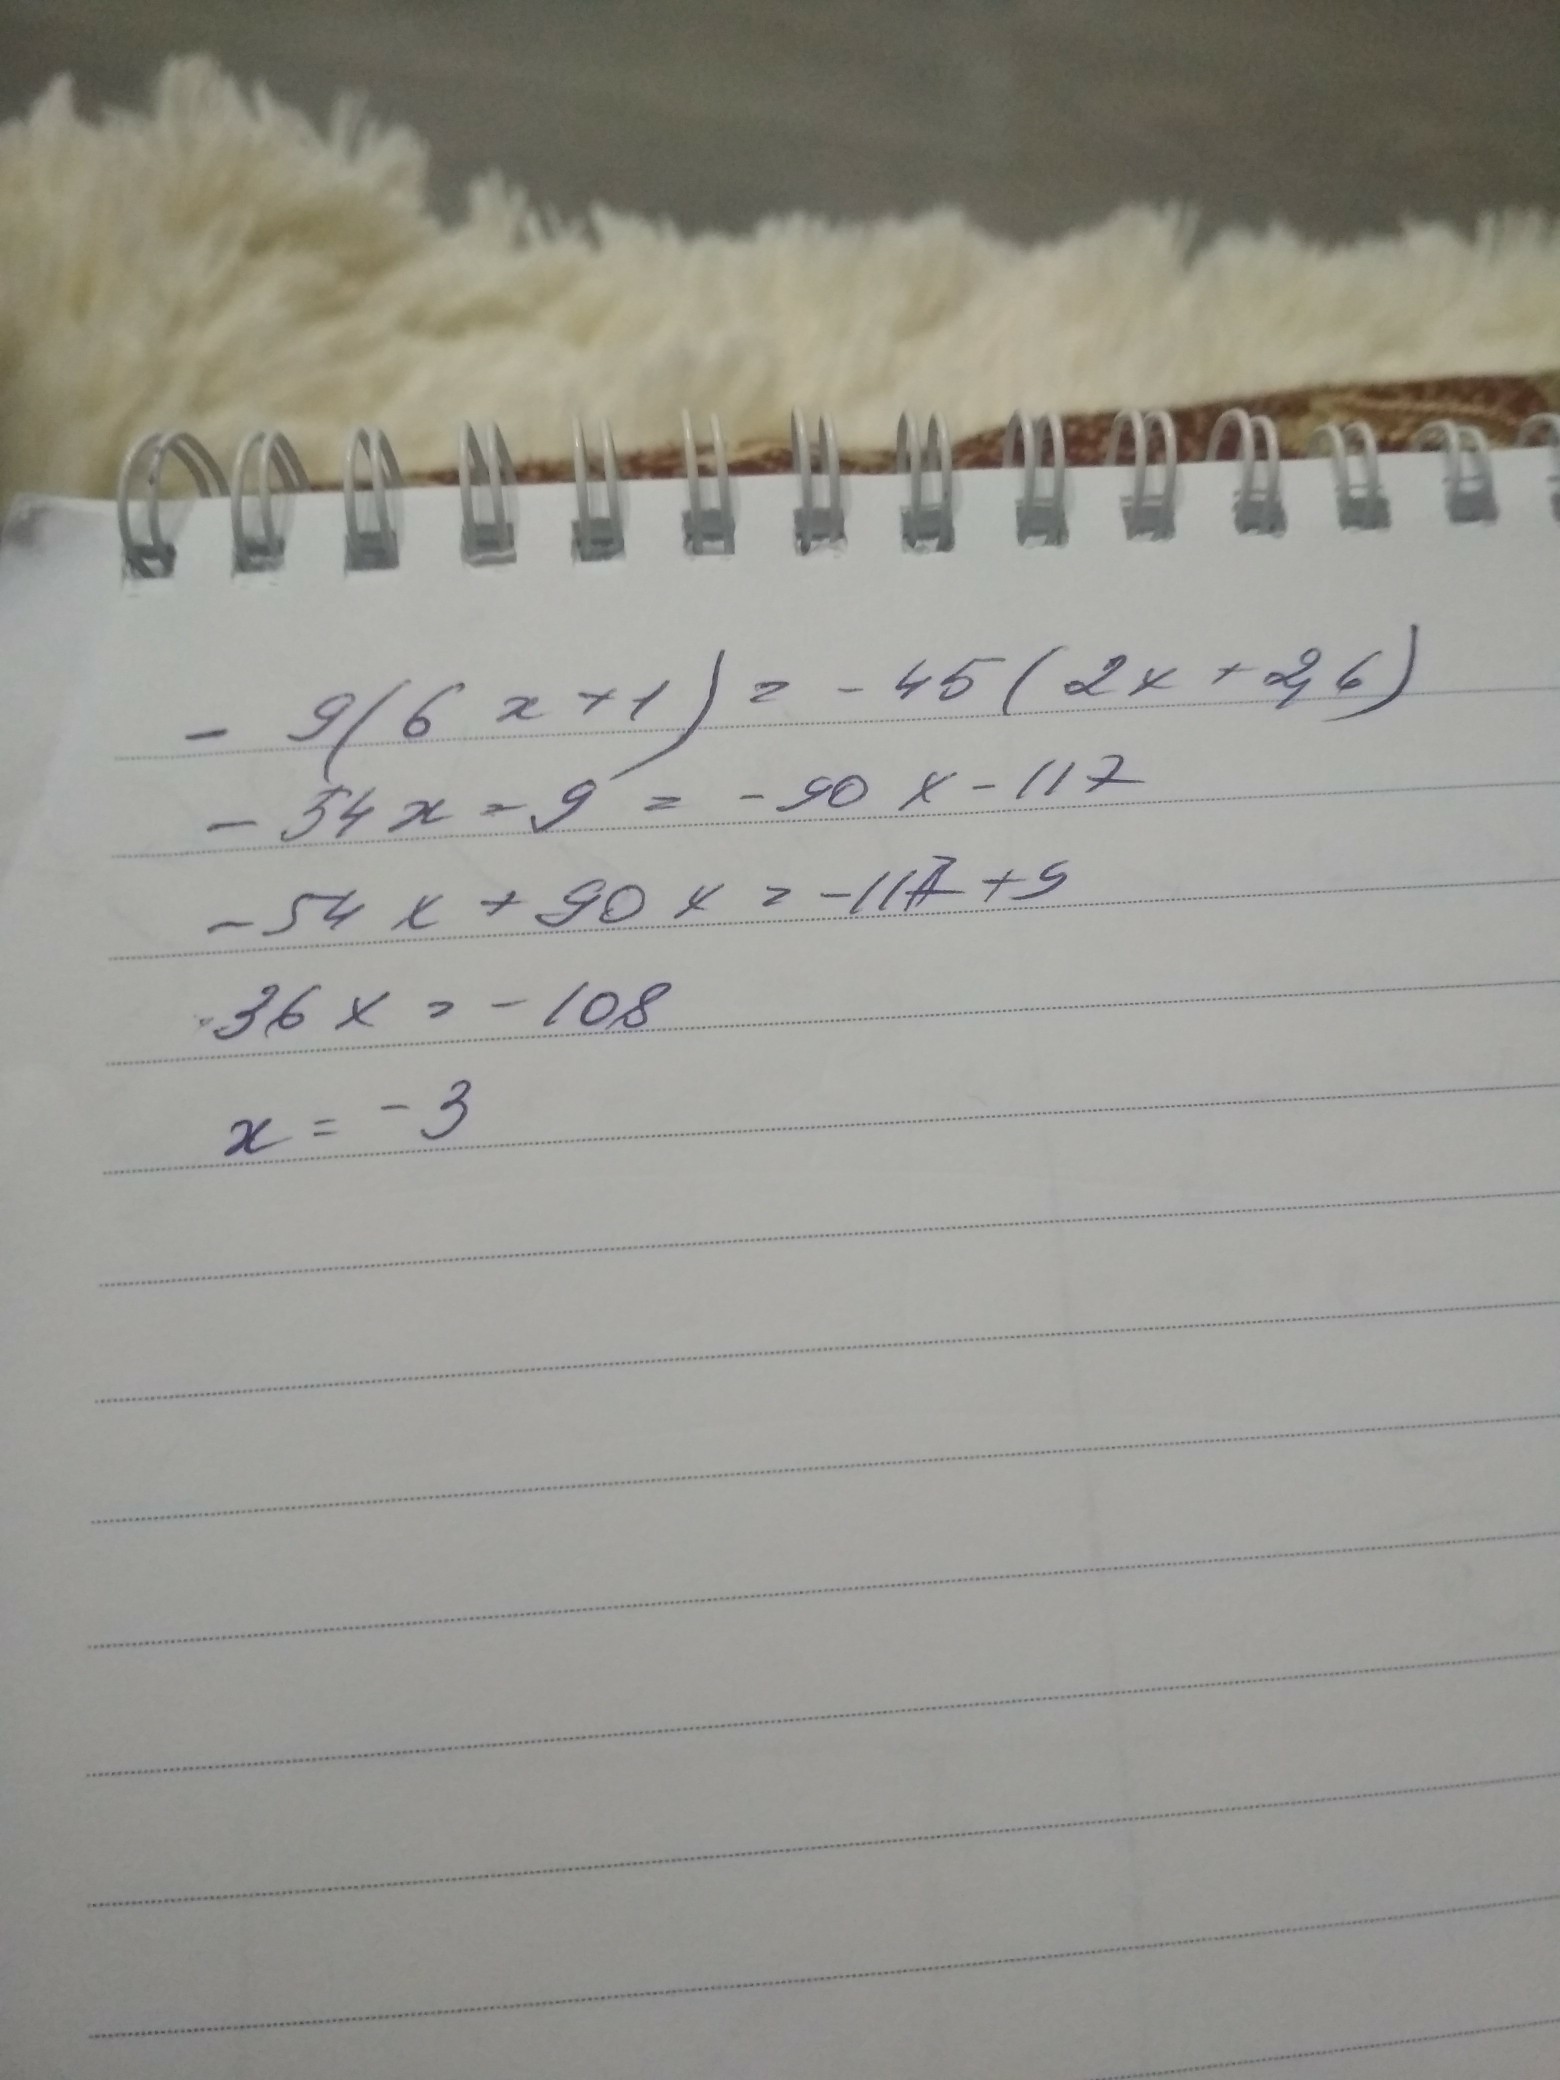 - 9(6x+1) = -45(2x+2,6)
-54x-9 = -90x-117
-54x+90x = -117+9
36x = -108
x = -3